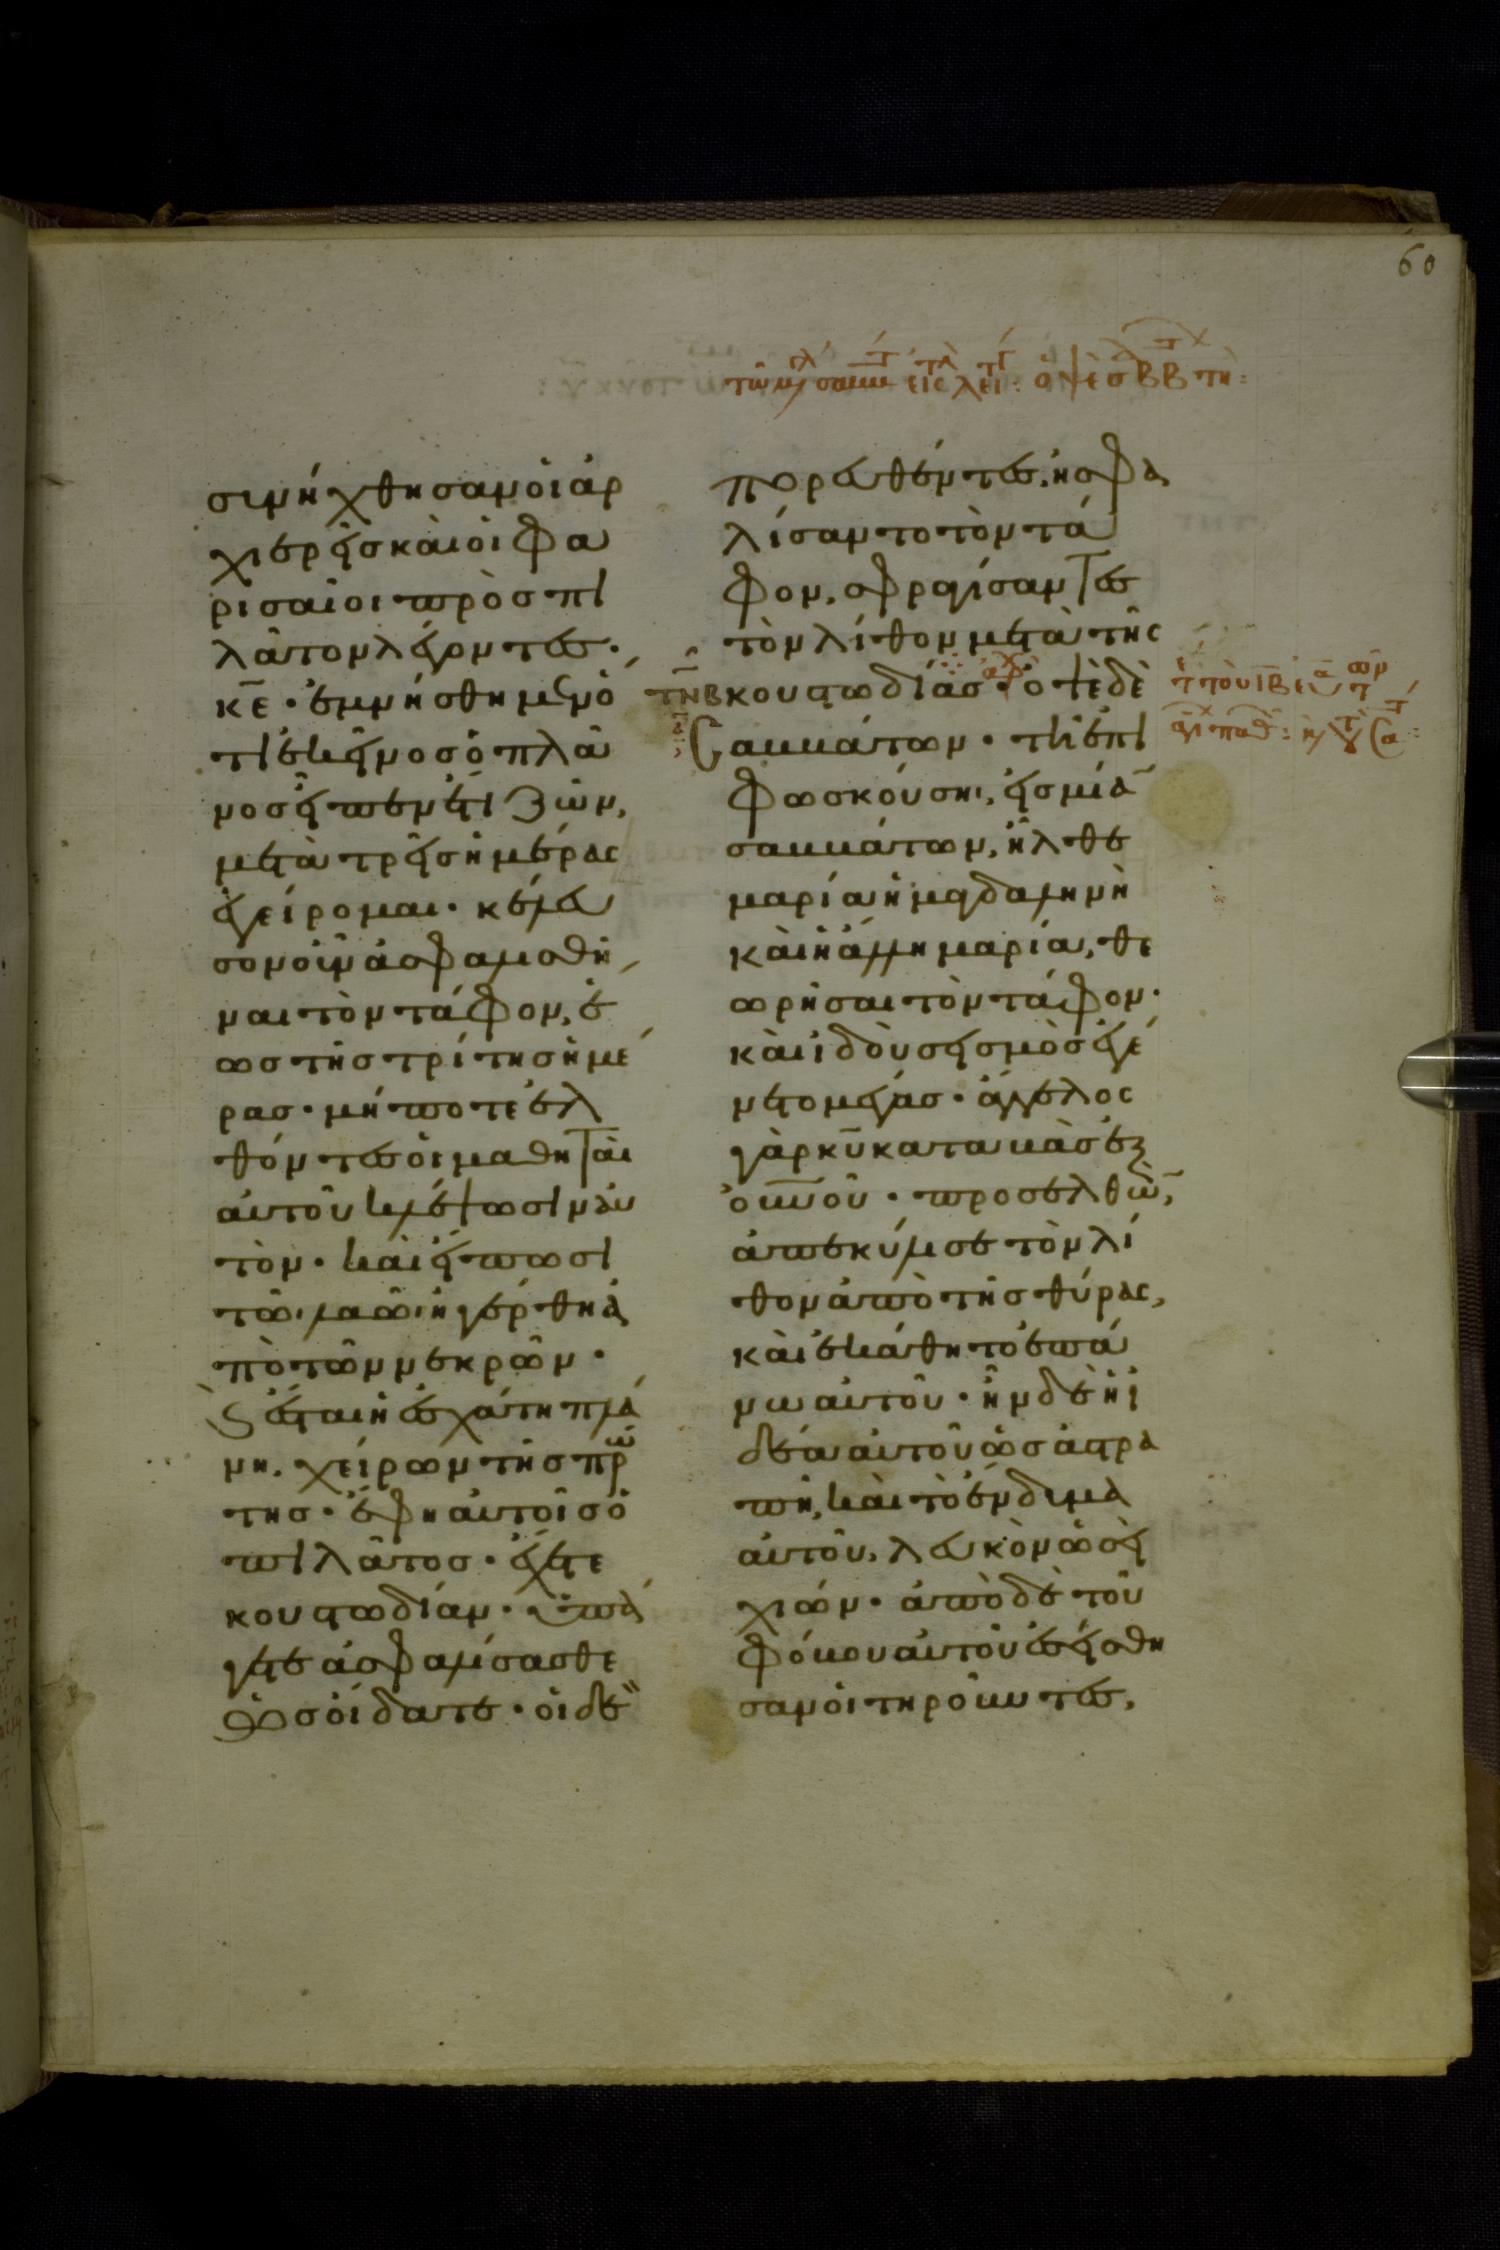 60
συνήχθησαν οἱ ἀρ
χιερεῖς καὶ οἱ φα
ρισαῖοι πρὸς πι
λᾶτον λέγοντες·
κε· ἐμνήσθημεν ὁ
τι ἐκεῖνος ὁ πλά
νος εἶπεν ἔτι ζῶν,
μετὰ τρεῖς ἡμέρας
ἐγείρομαι· κέλευ
σον οὖν ἀσφαλισθῆ
ναι τὸν τάφον, ἕ
ως τῆς τρίτης ἡμέ
ρας· μήποτε ἐλ
θόντες οἱ μαθηταὶ
αὐτοῦ κλέψωσιν αὐ
τόν· καὶ εἴπωσι
τῶ λαῶ ἠγέρθη ἀ
πὸ τῶν νεκρῶν·
καὶ ἔσται ἡ ἐσχάτη πλά
νη, χείρων τῆς πρώ
της· ἔφη αὐτοῖς ὁ
πιλᾶτος· ἔχετε
κουστωδίαν· ὑπά
γετε ἀσφαλίσασθε
ὡς οἴδατε· οἱ δὲ
πορευθέντες, ἠσφα
λίσαντο τὸν τά
φον, σφραγίσαντες
τὸν λίθον μετὰ τῆς
κουστωδίας· ὀψὲ δὲ
Σαββάτων· τῆ ἐπι
φωσκούσηι, εἰς μίαν
σαββάτων, ἦλθε
μαρία ἡ μαγδαληνὴ
καὶ ἡ ἄλλη μαρία, θε
ωρῆσαι τὸν τάφον·
καὶ ἰδοὺ σεισμὸς ἐγέ
νετο μέγας· ἄγγελος
γὰρ κυ καταβὰς ἐξ
οὐνοῦ· προσελθὼν,
ἀπεκύλισε τὸν λί
θον ἀπὸ τῆς θύρας,
καὶ ἐκάθητο ἐπά
νω αὐτοῦ· ἦν δὲ ἡ ἰ
δέα αὐτοῦ ὡς ἀστρα
πὴ, καὶ τὸ ἔνδυμα
αὐτοῦ, λευκὸν ὡσεὶ
χιών· ἀπὸ δὲ τοῦ
φόβου αὐτοῦ ἐσείσθη
σαν οἱ τηροῦντες,